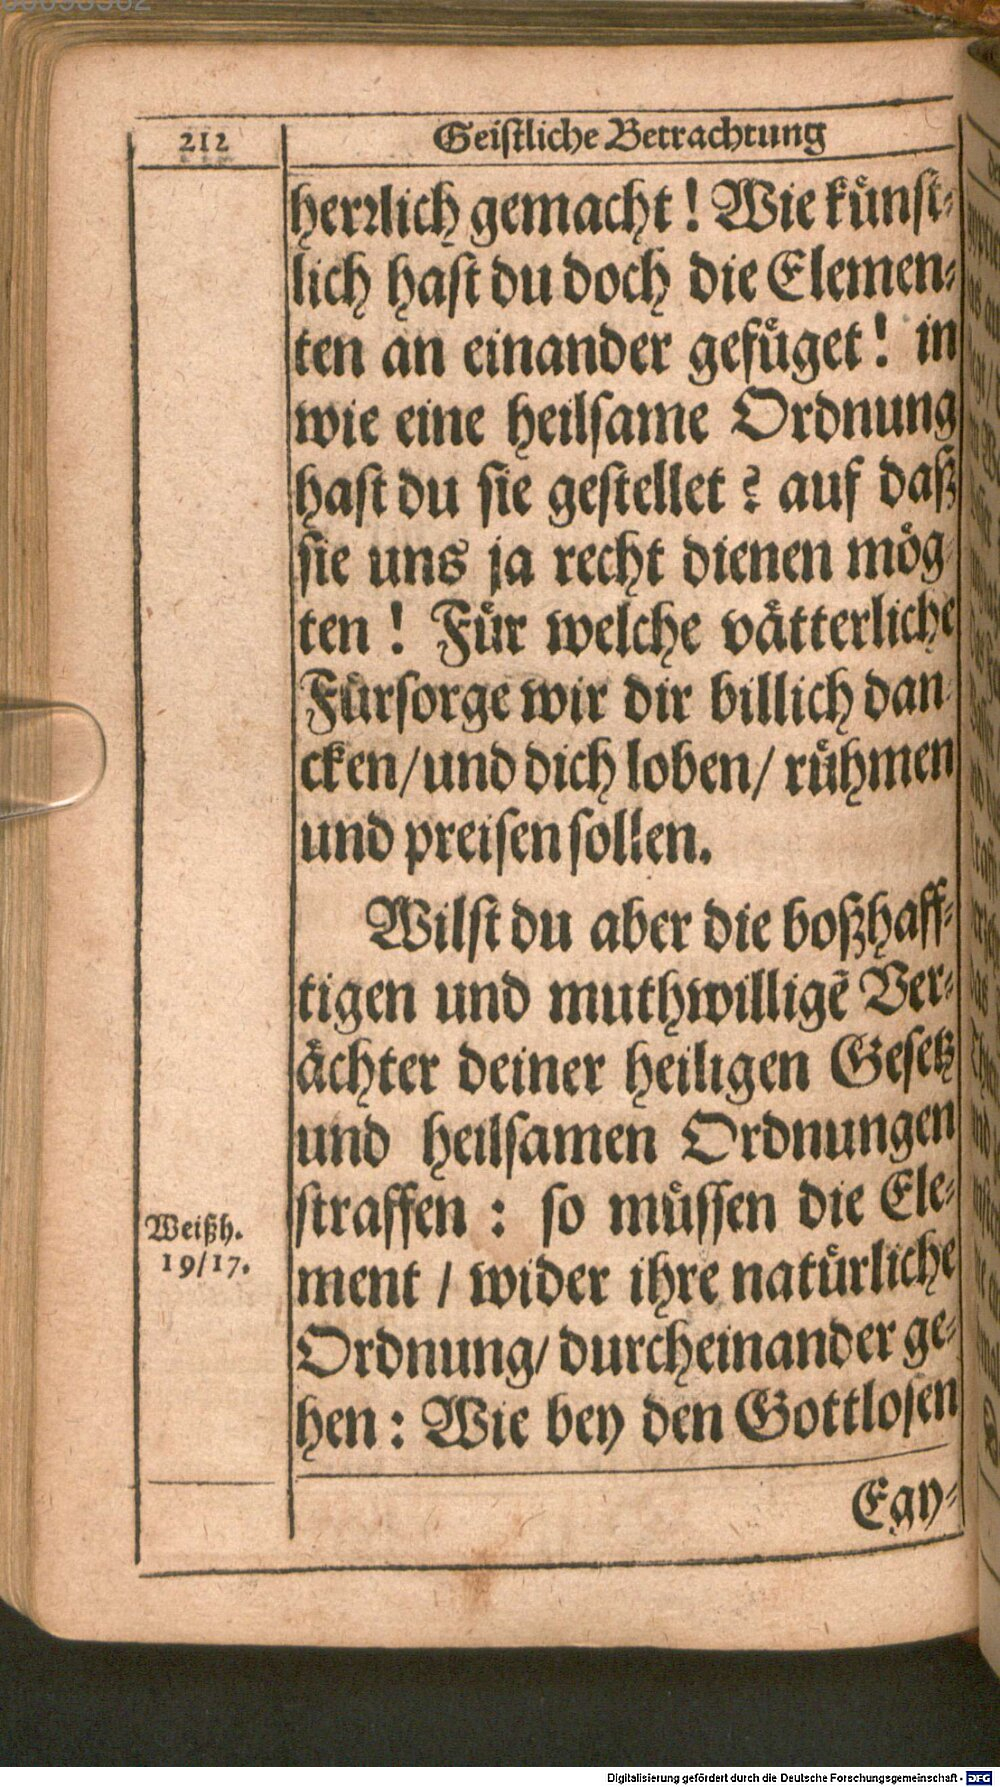 212
Geistliche Betrachtung
herꝛlich gemacht! Wie kuͤnst⸗
lich hast du doch die Elemen⸗
ten an einander gefuͤget! in
wie eine heilsame Ordnung
hast du sie gestellet? auf daß
sie uns ja recht dienen moͤg⸗
ten! Fuͤr welche vaͤtterliche
Fuͤrsorge wir dir billich dan⸗
cken/und dich loben/ ruͤhmen
und preisen sollen.
Wilst du aber die boßhaff⸗
tigen und muthwilligẽ Ver⸗
aͤchter deiner heiligen Gesetz
und heilsamen Ordnungen
straffen: so muͤssen die Ele⸗
Weißh.
19/17.
ment / wider ihre natuͤrliche
Ordnung/ durcheinander ge⸗
hen: Wie bey den Gottlosen
Egy⸗
Digitalisierung gefördert durch die Deutsche Forschungsgemeinschaft - DFG